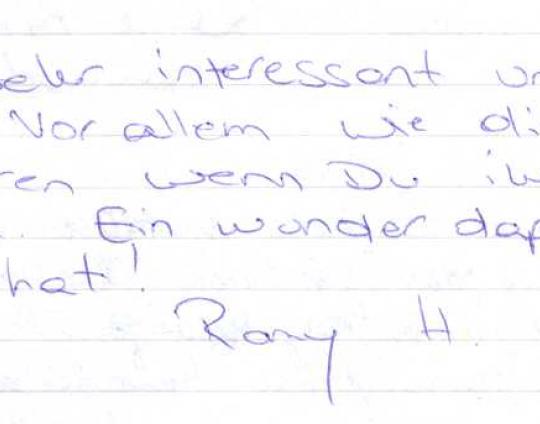 sehr interessant un
Vor allem wie di
ren wenn Du ih
. Ein wunder daß
hat!
Romy H.